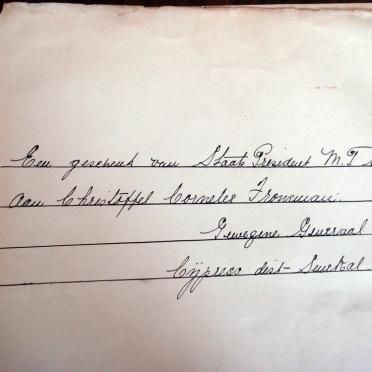 Een geschenk van Staats President M.T S
aan Christoffel Cornelis Froneman.
Gewezene Generaal
Cÿpress dist- Senekal.